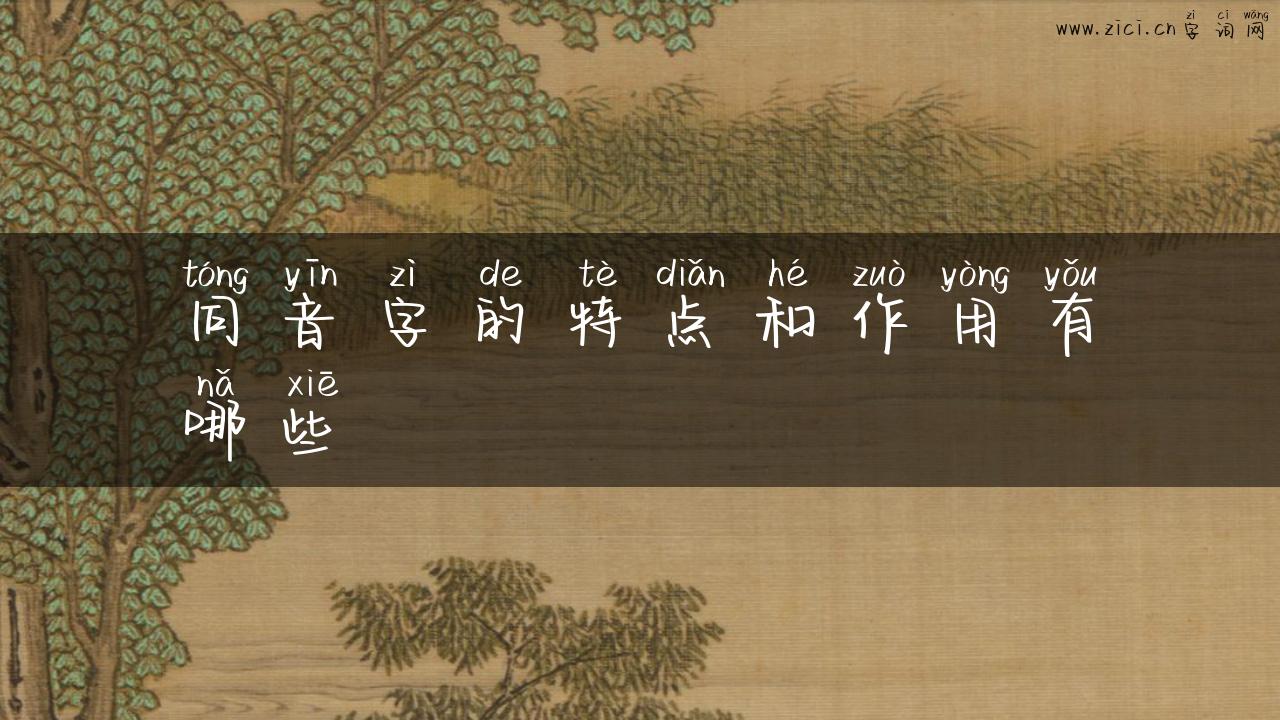 zì cí wǎng
www.zici.cn 字词网
tóng yīn zì de tè diǎn hé zuò yòng yǒu
同音字的特点和作用有
nǎ xiē
哪些